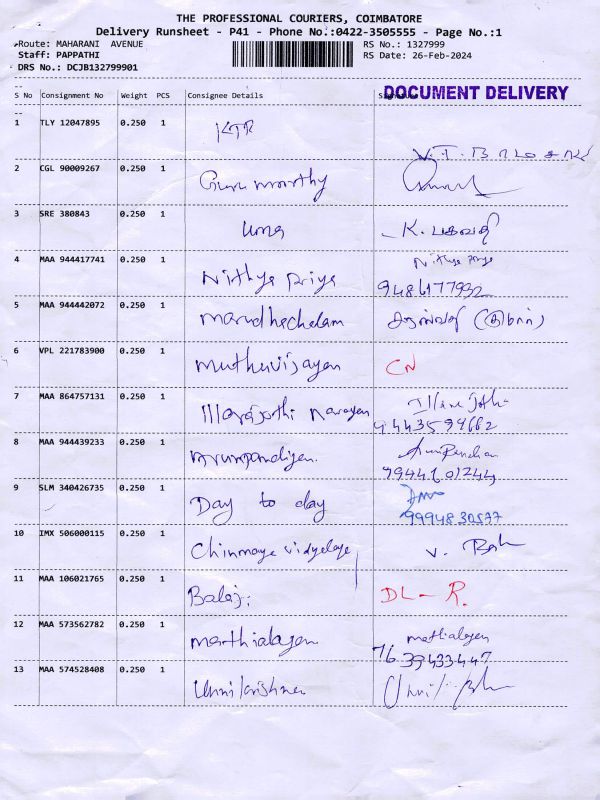 THE PROFESSIONAL COURIERS, COIMBATORE
Delivery Runsheet - P41 - Phone No.:0422-3505555 - Page No.:1
Route: MAHARANI AVENUE RS No.: 1327999
Staff: PAPPATHI RS Date: 26-Feb-2024
DRS No.: DCJB132799901
DOCUMENT DELIVERY
S No Consignment No Weight PCS Consignee Details
1 TLY 12047895 0.250 1 KTR
2 CGL 90009267 0.250 1 Guru moorthy
3 SRE 380843 0.250 1 Uma K.
4 MAA 944417741 0.250 1 Nithya Priya Nithya Priya
9486177932
5 MAA 944442072 0.250 1 Marudhachalam
6 VPL 221783900 0.250 1 Muthuvijayan CN
7 MAA 864757131 0.250 1 Narayan
9443594662
8 MAA 944439233 0.250 1 Arunpandiyan.
9944101244
9 SLM 340426735 0.250 1 Day to day
9994830577
10 IMX 506000115 0.250 1 Chinmaya vidyalaya V.
11 MAA 106021765 0.250 1 Balaji DL - R.
12 MAA 573562782 0.250 1 Mathialagan Mathialagan
7639433447
13 MAA 574528408 0.250 1 Unnikrishnan